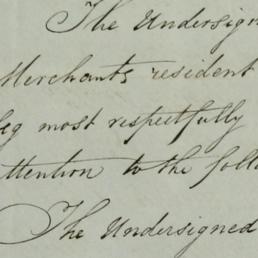 The Undersign
Merchants resident
beg most respectfully
attention to the foll
The Undersigned